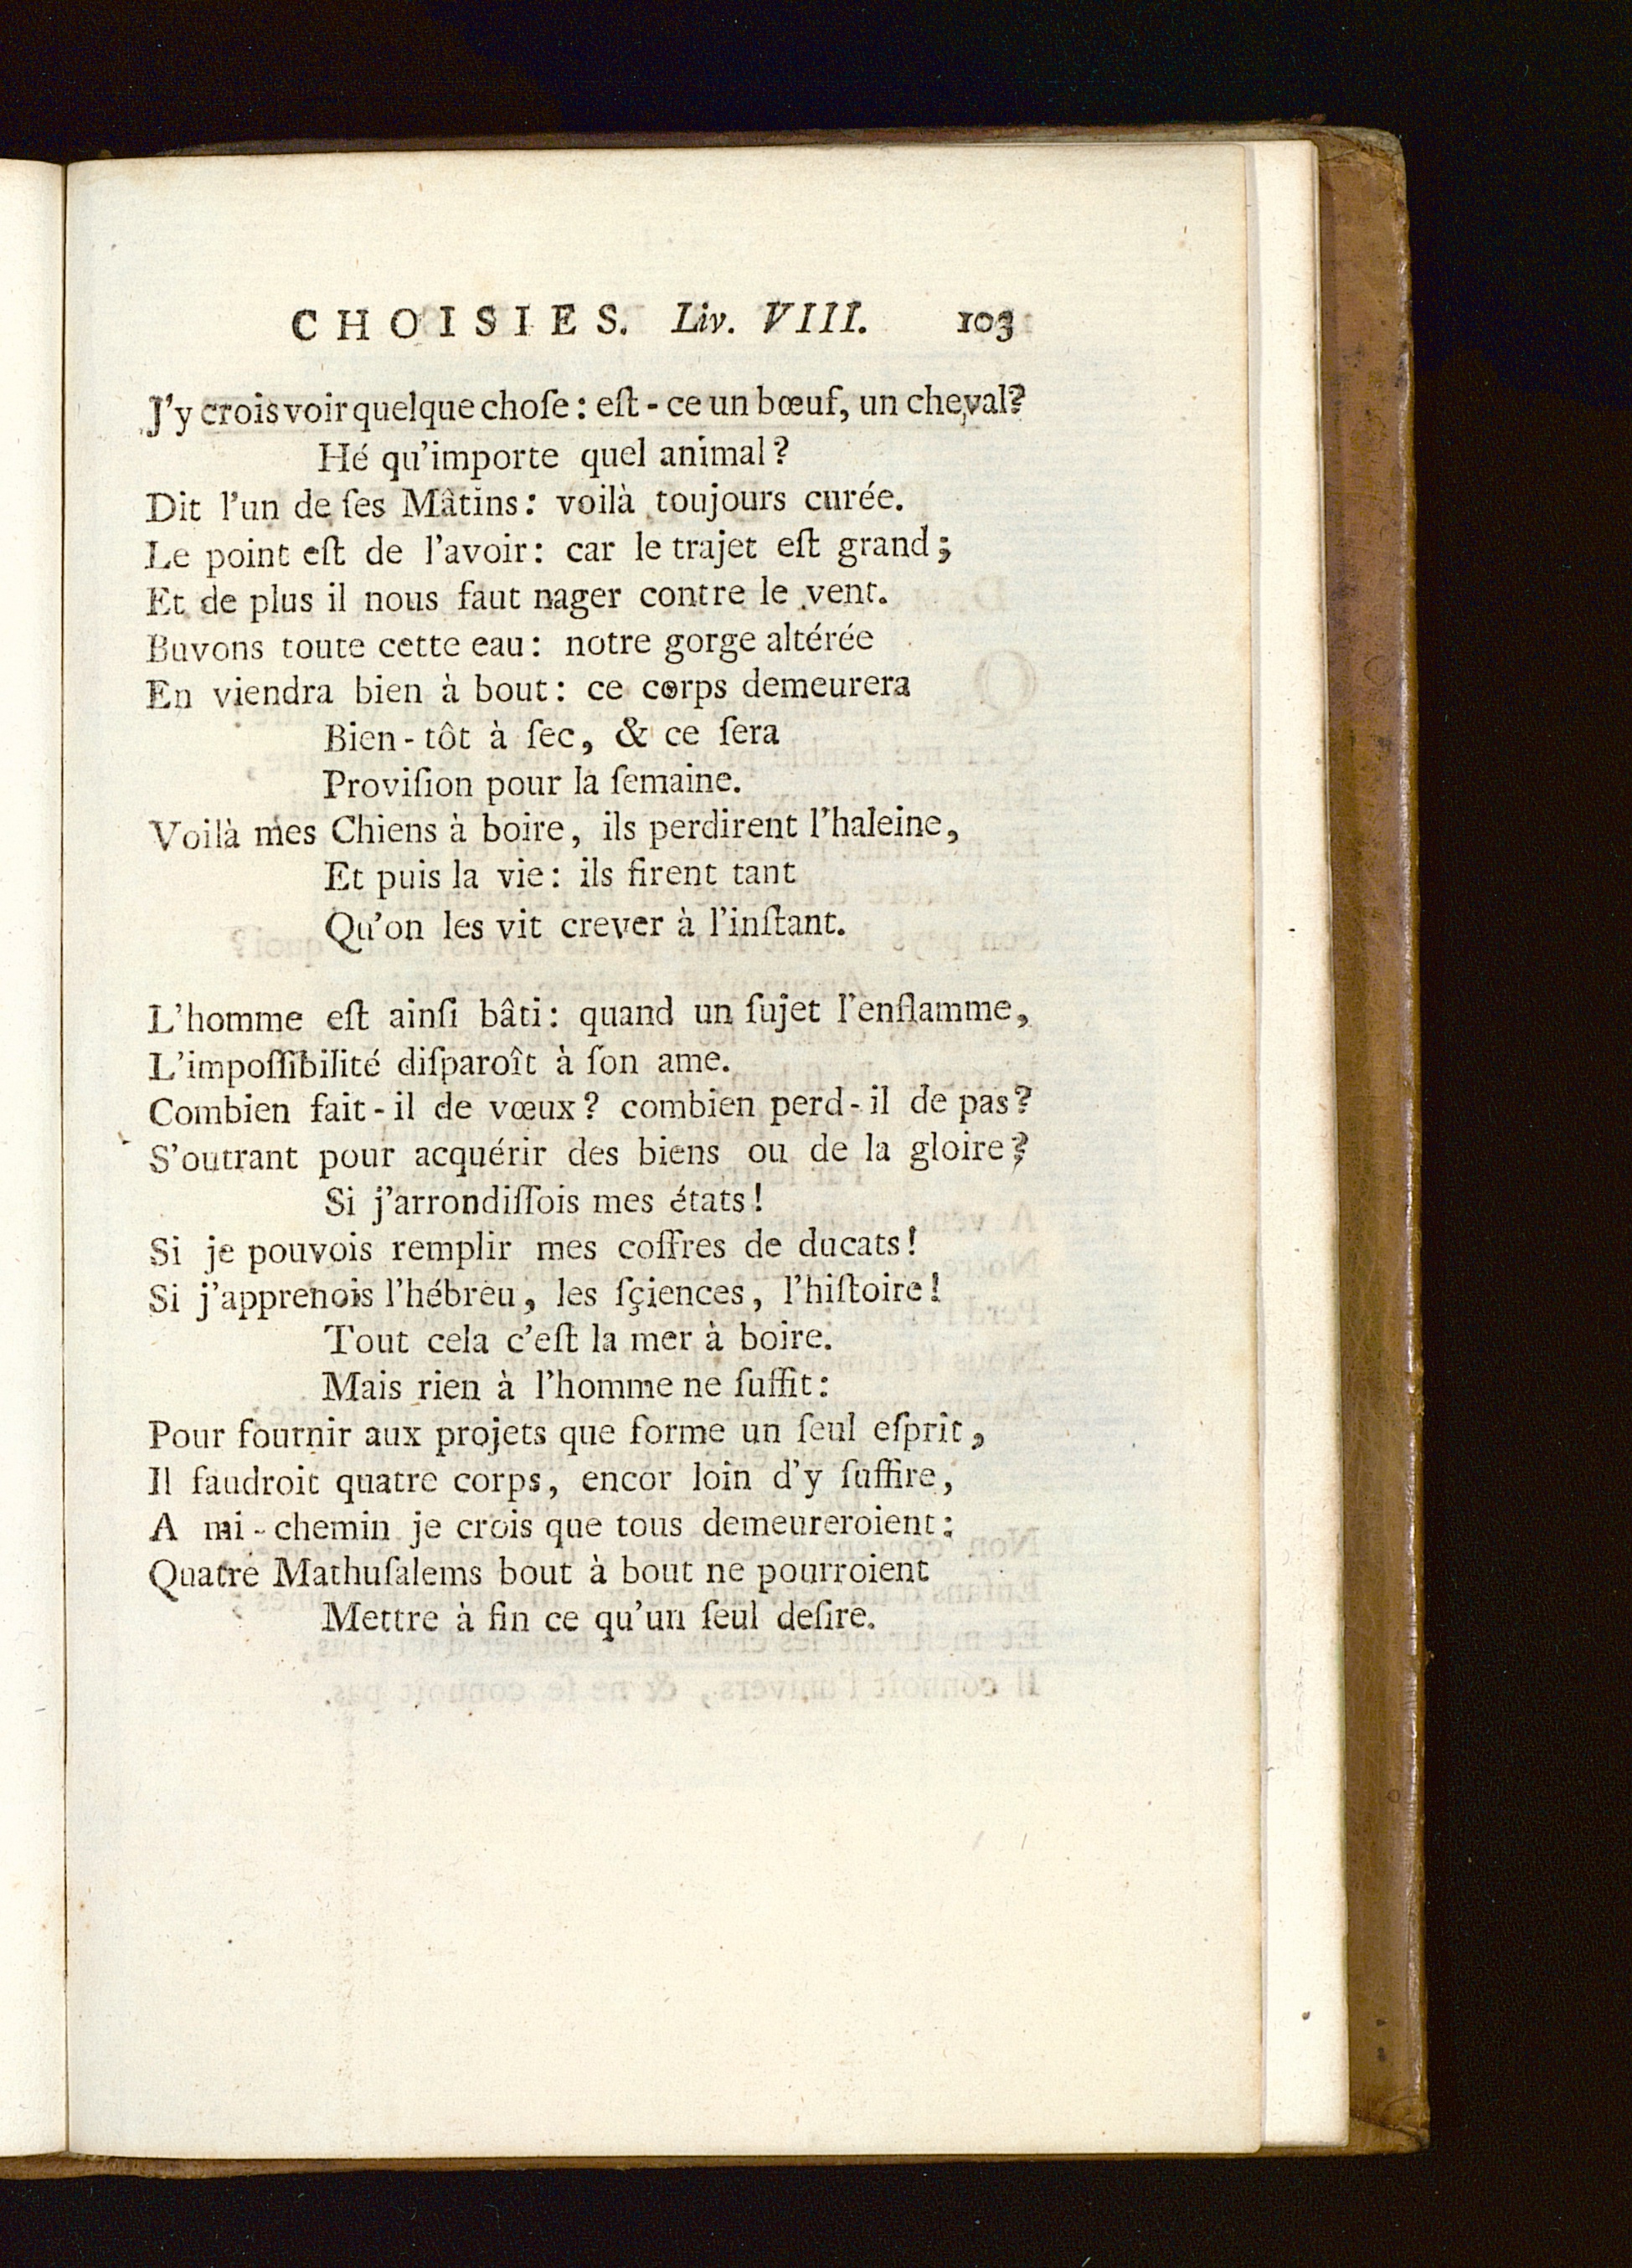 CHOISIES. Liv. VIII. 103
J'y crois voir quelque choſe : eſt-ce un bœuf, un cheval?
Hé qu'importe quel animal?
Dit l'un de ſes Mâtins: voilà toujours curée.
Le point eſt de l'avoir: car le trajet eſt grand;
Et de plus il nous faut nager contre le vent.
Buvons toute cette eau: notre gorge altérée
En viendra bien à bout: ce corps demeurera
Bien-tôt à ſec, & ce ſera
Proviſion pour la ſemaine.
Voilà mes Chiens à boire, ils perdirent l'haleine,
Et puis la vie: ils firent tant
Qu'on les vit crever à l'inſtant.
L'homme eſt ainſi bâti: quand un ſujet l'enflamme,
L'impoſſibilité diſparoît à ſon ame.
Combien fait-il de vœux? combien perd-il de pas?
S'outrant pour acquérir des biens ou de la gloire?
Si j'arrondiſſois mes états!
Si je pouvois remplir mes coffres de ducats!
Si j'apprenois l'hébreu, les ſçiences, l'hiſtoire!
Tout cela c'eſt la mer à boire.
Mais rien à l'homme ne ſuffit:
Pour fournir aux projets que forme un ſeul eſprit,
Il faudroit quatre corps, encor loin d'y ſuffire,
A mi-chemin je crois que tous demeureroient:
Quatre Mathuſalems bout à bout ne pourroient
Mettre à fin ce qu'un ſeul deſire.